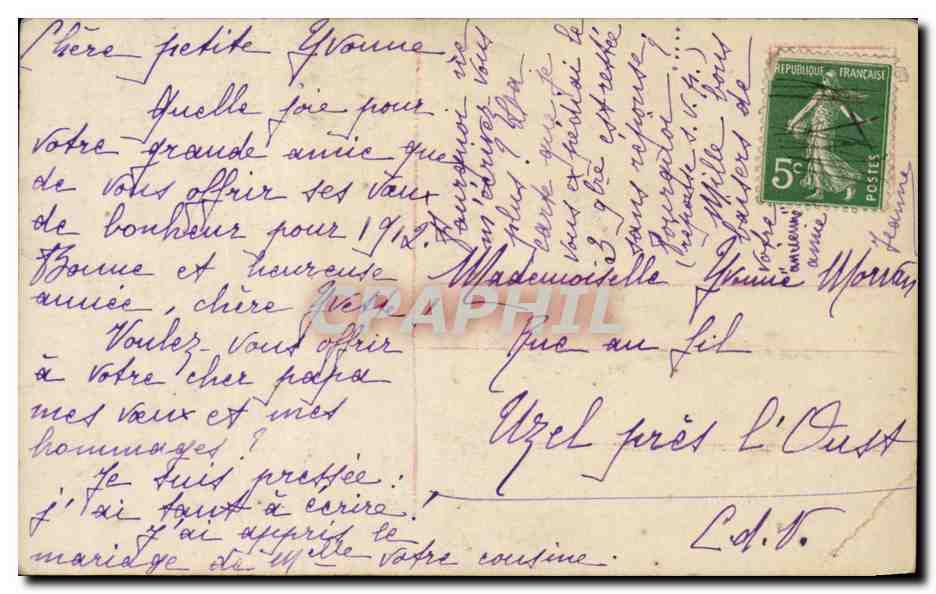 Chère petite Yvonne
Quelle joie pour
votre grande amie que
de vous offrir ses vœux
de bonheur pour 1912.
Bonne et heureuse
année, chère Yvette!
Voulez-vous offrir
à votre cher papa
mes vœux et mes
hommages?
Je suis pressée:
j'ai tant à écrire!
J'ai appris le
mariage de Mlle votre cousine.
Pourquoi ne
m'écrivez vous
plus?
carte que je
vous expédiai le
3 est restée
sans réponse!
Pourquoi?
(réponse s.v.p.)....
Mille bons
baisers de
votre
"ancienne"
amie
Jeanne
REPUBLIQUE FRANÇAISE
5c
POSTES
Mademoiselle Yvonne Morvan
Rue au fil
Uzel près l'Oust
C.d.N.
CPAPHIL